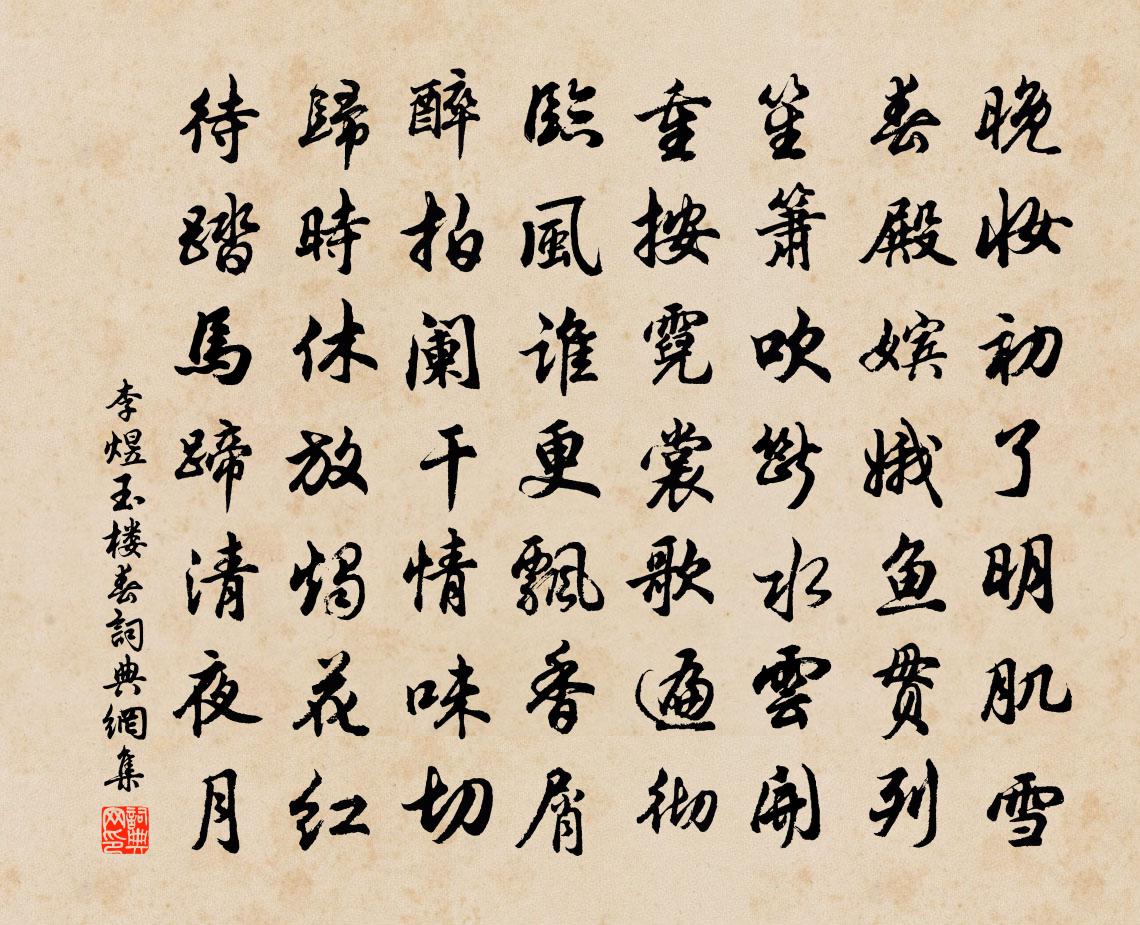 晚妝初了明肌雪
春殿嬪娥魚貫列
笙簫吹斷水雲開
重按霓裳歌遍彻
臨風誰更飄香屑
醉拍闌干情味切
歸時休放燭花紅
待踏馬蹄清夜月
李煜玉楼春詞典網集
詞典网印